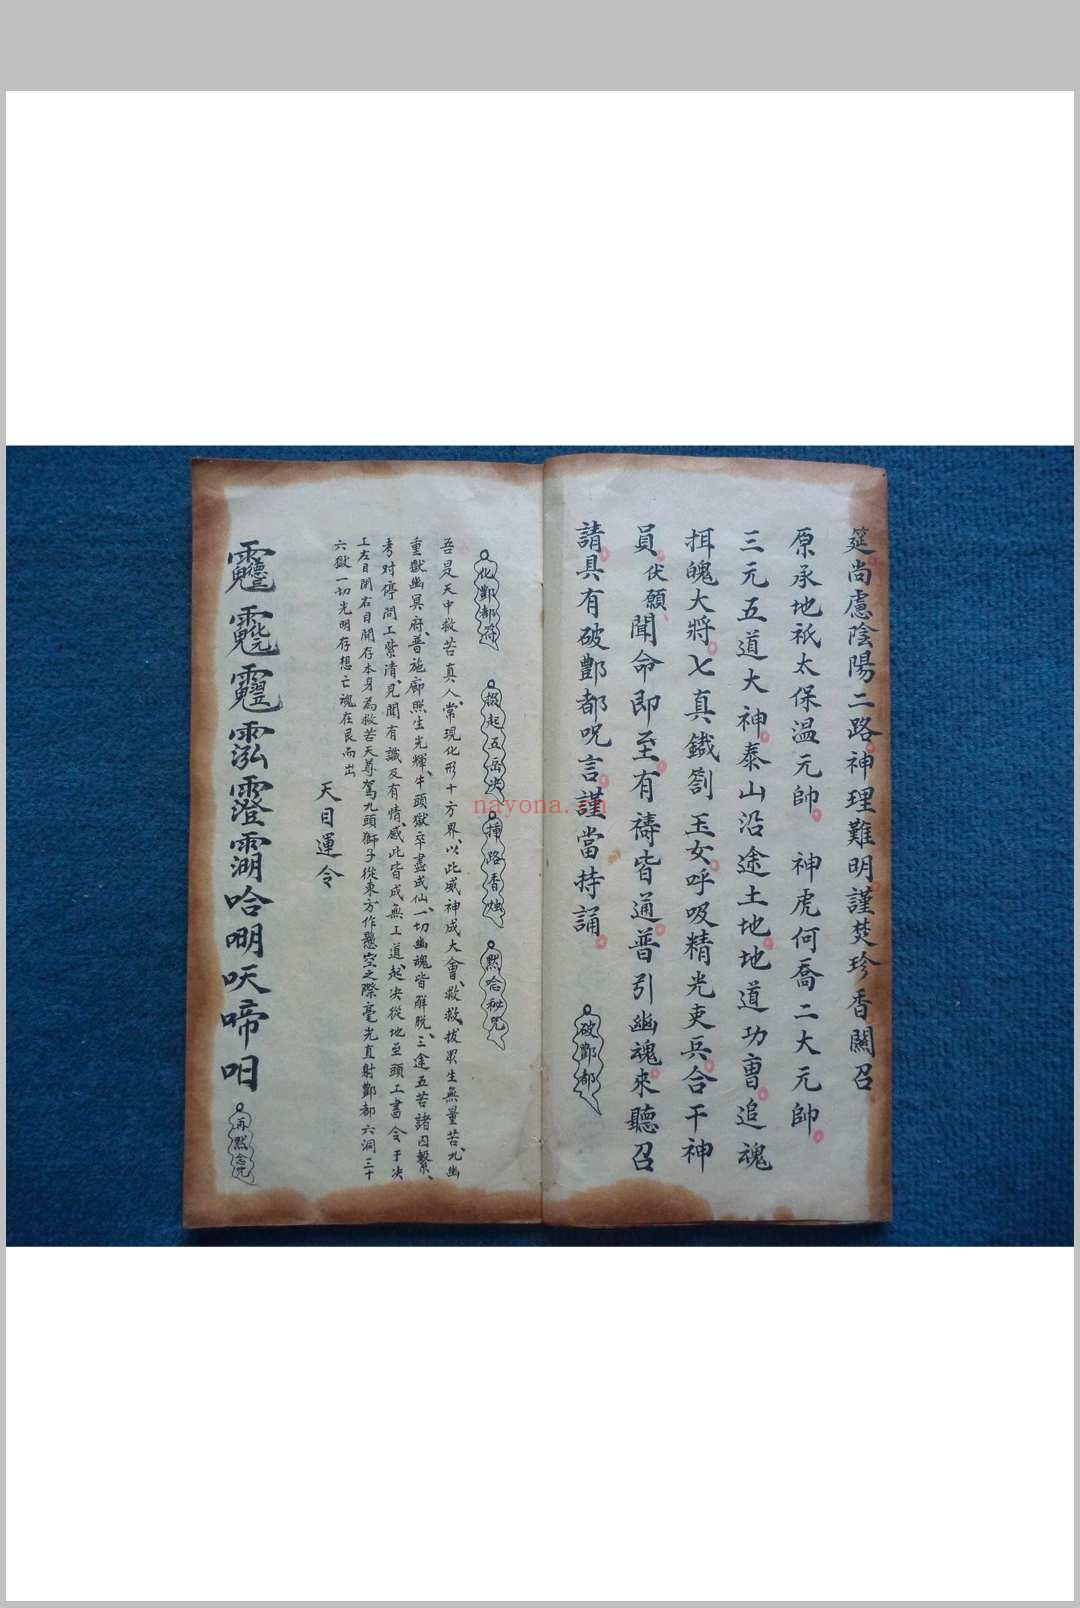 筵尚慮陰陽二路神理難明謹焚珍香關召
原承地祇太保温元帥 神虎何喬二大元帥
三元五道大神泰山沿途土地地道功曹追魂
挕魄大將七真鐵劄玉女呼吸精光吏兵合干神
員伏願聞命即至有禱皆通普引幽魂來聽召
請具有破酆都呪言謹當持誦 破酆都
化酆都符 掇起五岳决 揷路香烛 黙念秘咒
吾是天中救苦真人常現化形十方界以此威神成大會救救拔眾生無量苦九幽
重獄幽冥府普施廓照生光輝牛頭獄卒盡成仙一切幽魂皆解脱三途五苦諸囚繫
考对停問工紫清見聞有識及有情感此皆成無工道起决從地至頭工書令于决
工左目開右目開存本身為救苦天尊駕九頭獅子從東方作懸空之際毫光直射酆都六洞三十
六獄一切光明存想亡魂在艮而出
天目運令
哈 吷啼呾 再黙念咒
nayona.cn